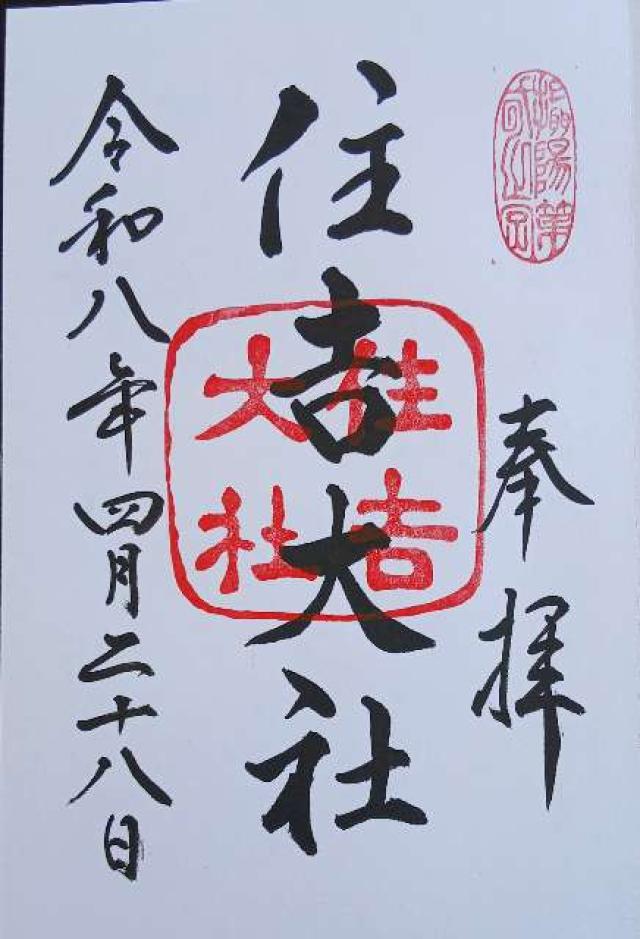 奉拝
住吉大社
住吉
大社
令和八年四月二十八日